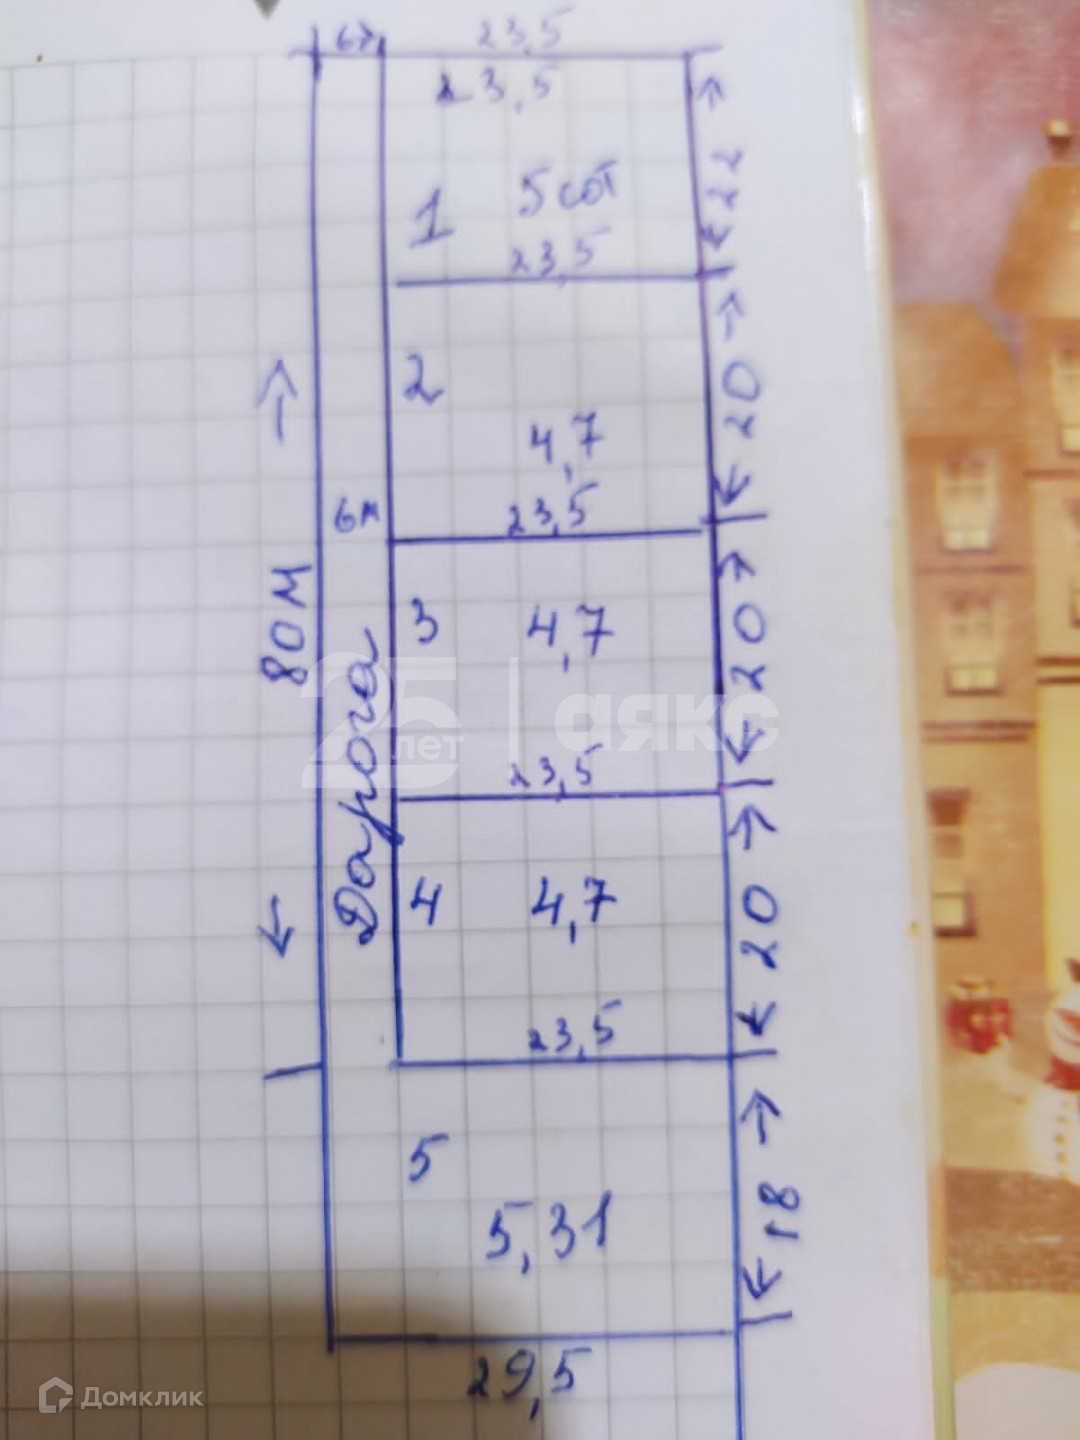 6м
23,5
23,5
22
1
5 сот
23,5
2
20
4,7
6м
23,5
80м
3
4,7
20
Дарога
25 лет | аякс
23,5
4
4,7
20
23,5
5
5,31
18
29,5
Домклик